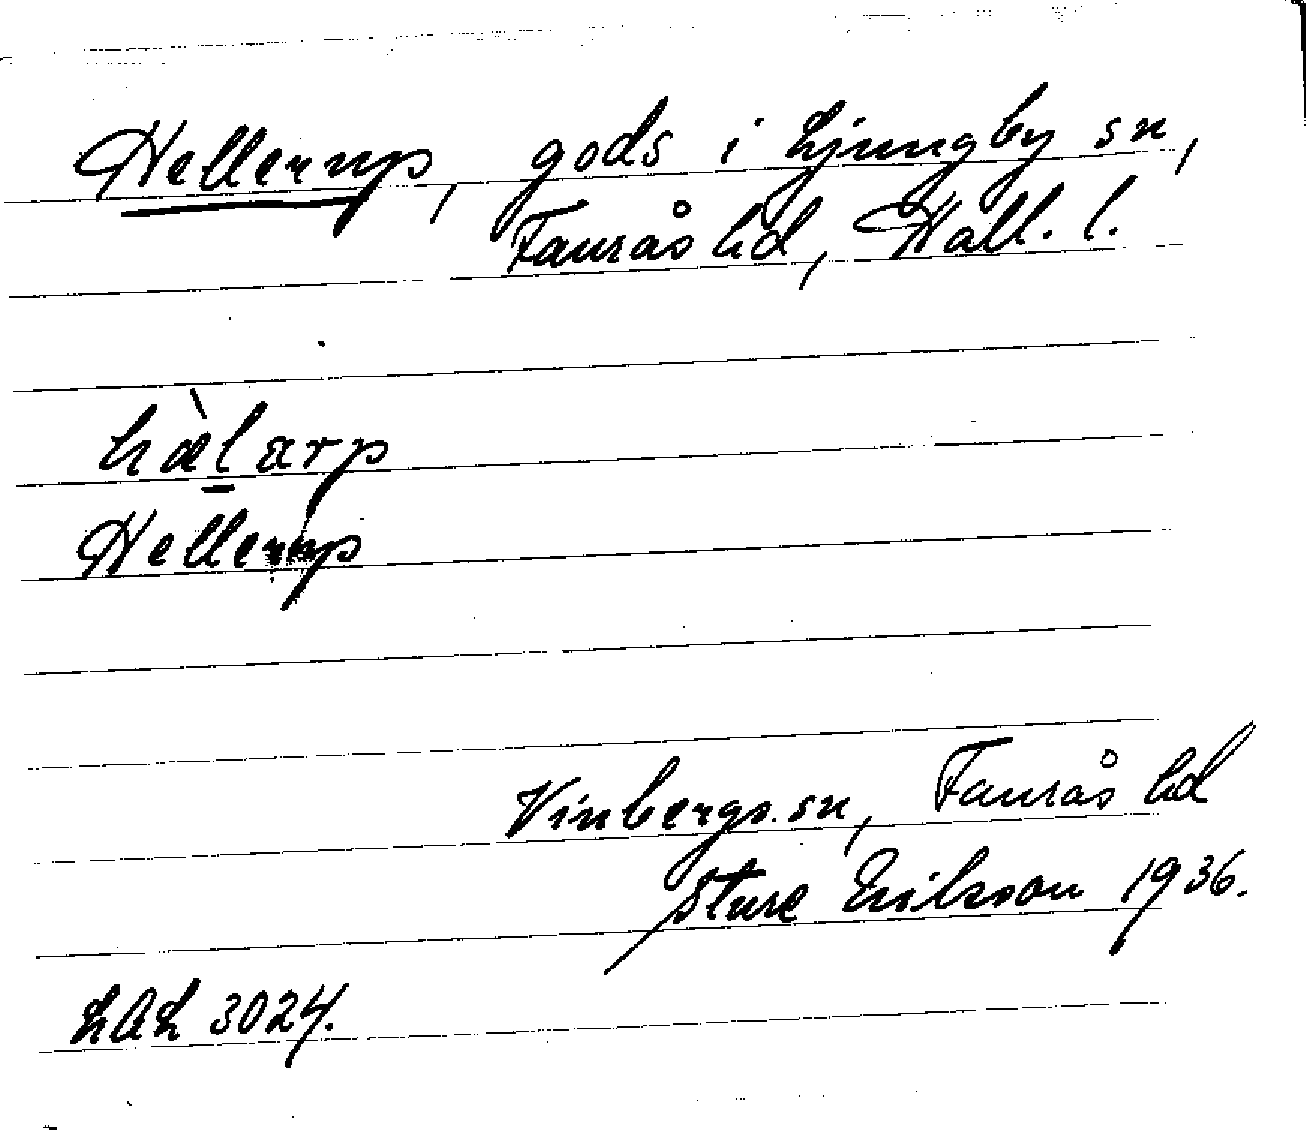 Hellerup, gods i Ljungby sn,
Faurås hd, Hall. l.
hæ̀l̲ ærp
Hellerup
Vinbergs sn, Faurås hd
Sture Erilsson 1936.
LAL 3024.